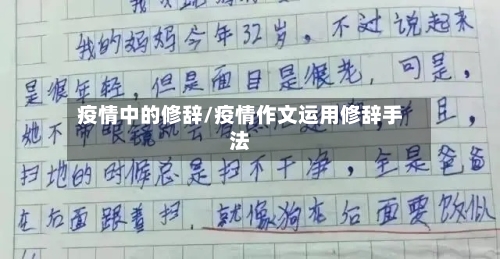 我的妈妈今年32岁，不过说起来
是很年轻，但是面目是很老，可是，
疫情中的修辞/疫情作文运用修辞手
法
她不带眼镜就
且，
扫地的时候总是扫不干净，全是爸爸
在后面跟着扫，就像狗在后面要饭似